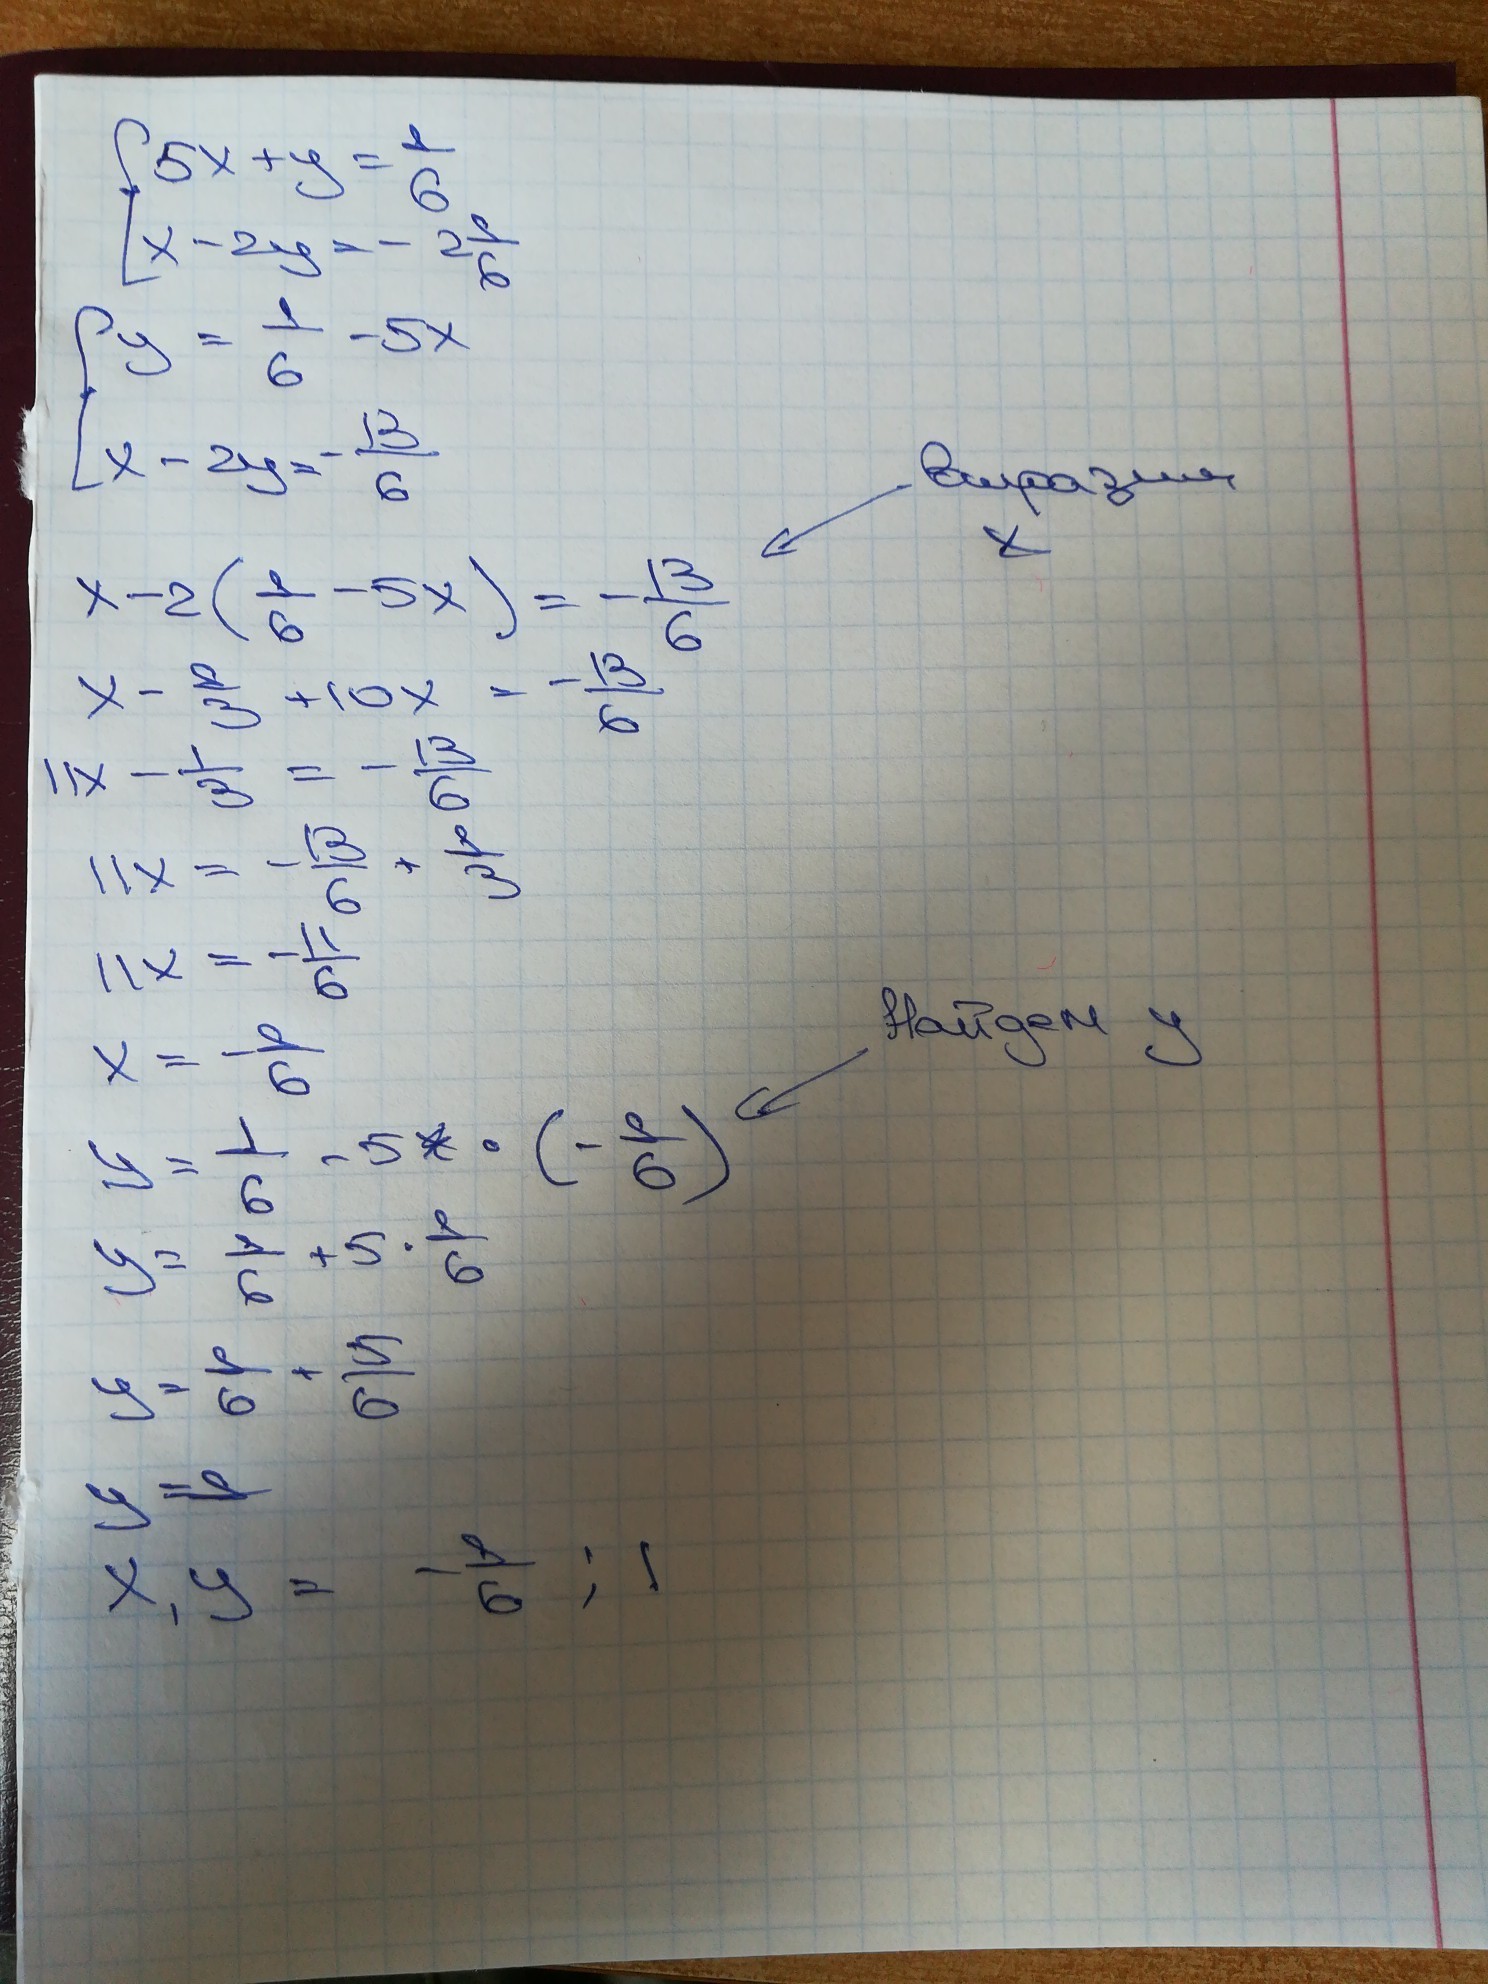 5x + y = 1/6
x - 2y = - 2 1/6
y = 1/6 - 5x
x - 2y = - 13/6
Выразим
x
x - 2(1/6 - 5x) = - 13/6
x - 1/3 + 10x = - 13/6
11x - 1/3 = - 13/6
11x = - 13/6 + 1/3
11x = - 11/6
x = - 1/6
Найдем y
y = 1/6 - 5 · (- 1/6)
y = 1/6 + 5 · 1/6
y = 1/6 + 5/6
y = 1
x, y = - 1/6 ; 1